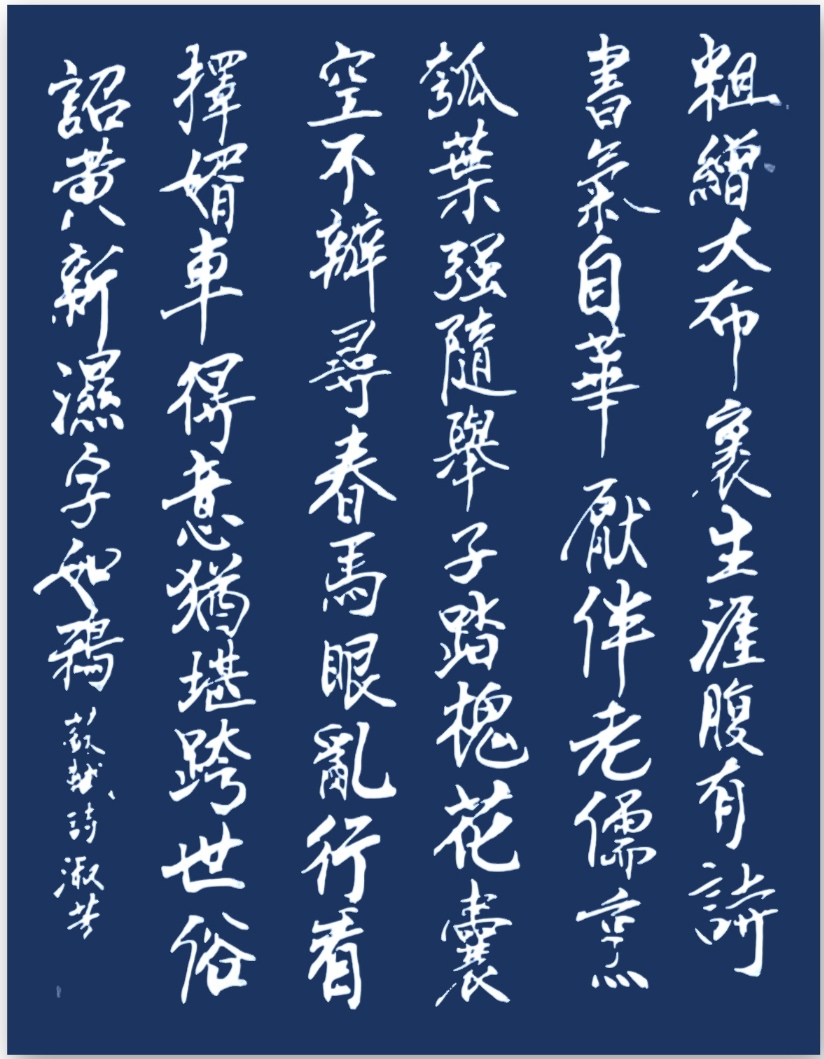 粗繒大布裹生涯腹有詩
書氣自華厭伴老儒烹
瓠葉强隨舉子踏槐花囊
空不辦尋春馬眼亂行看
擇婿車得意猶堪跨世俗
詔黄新濕字如鴉 蘇軾詩 淑芳